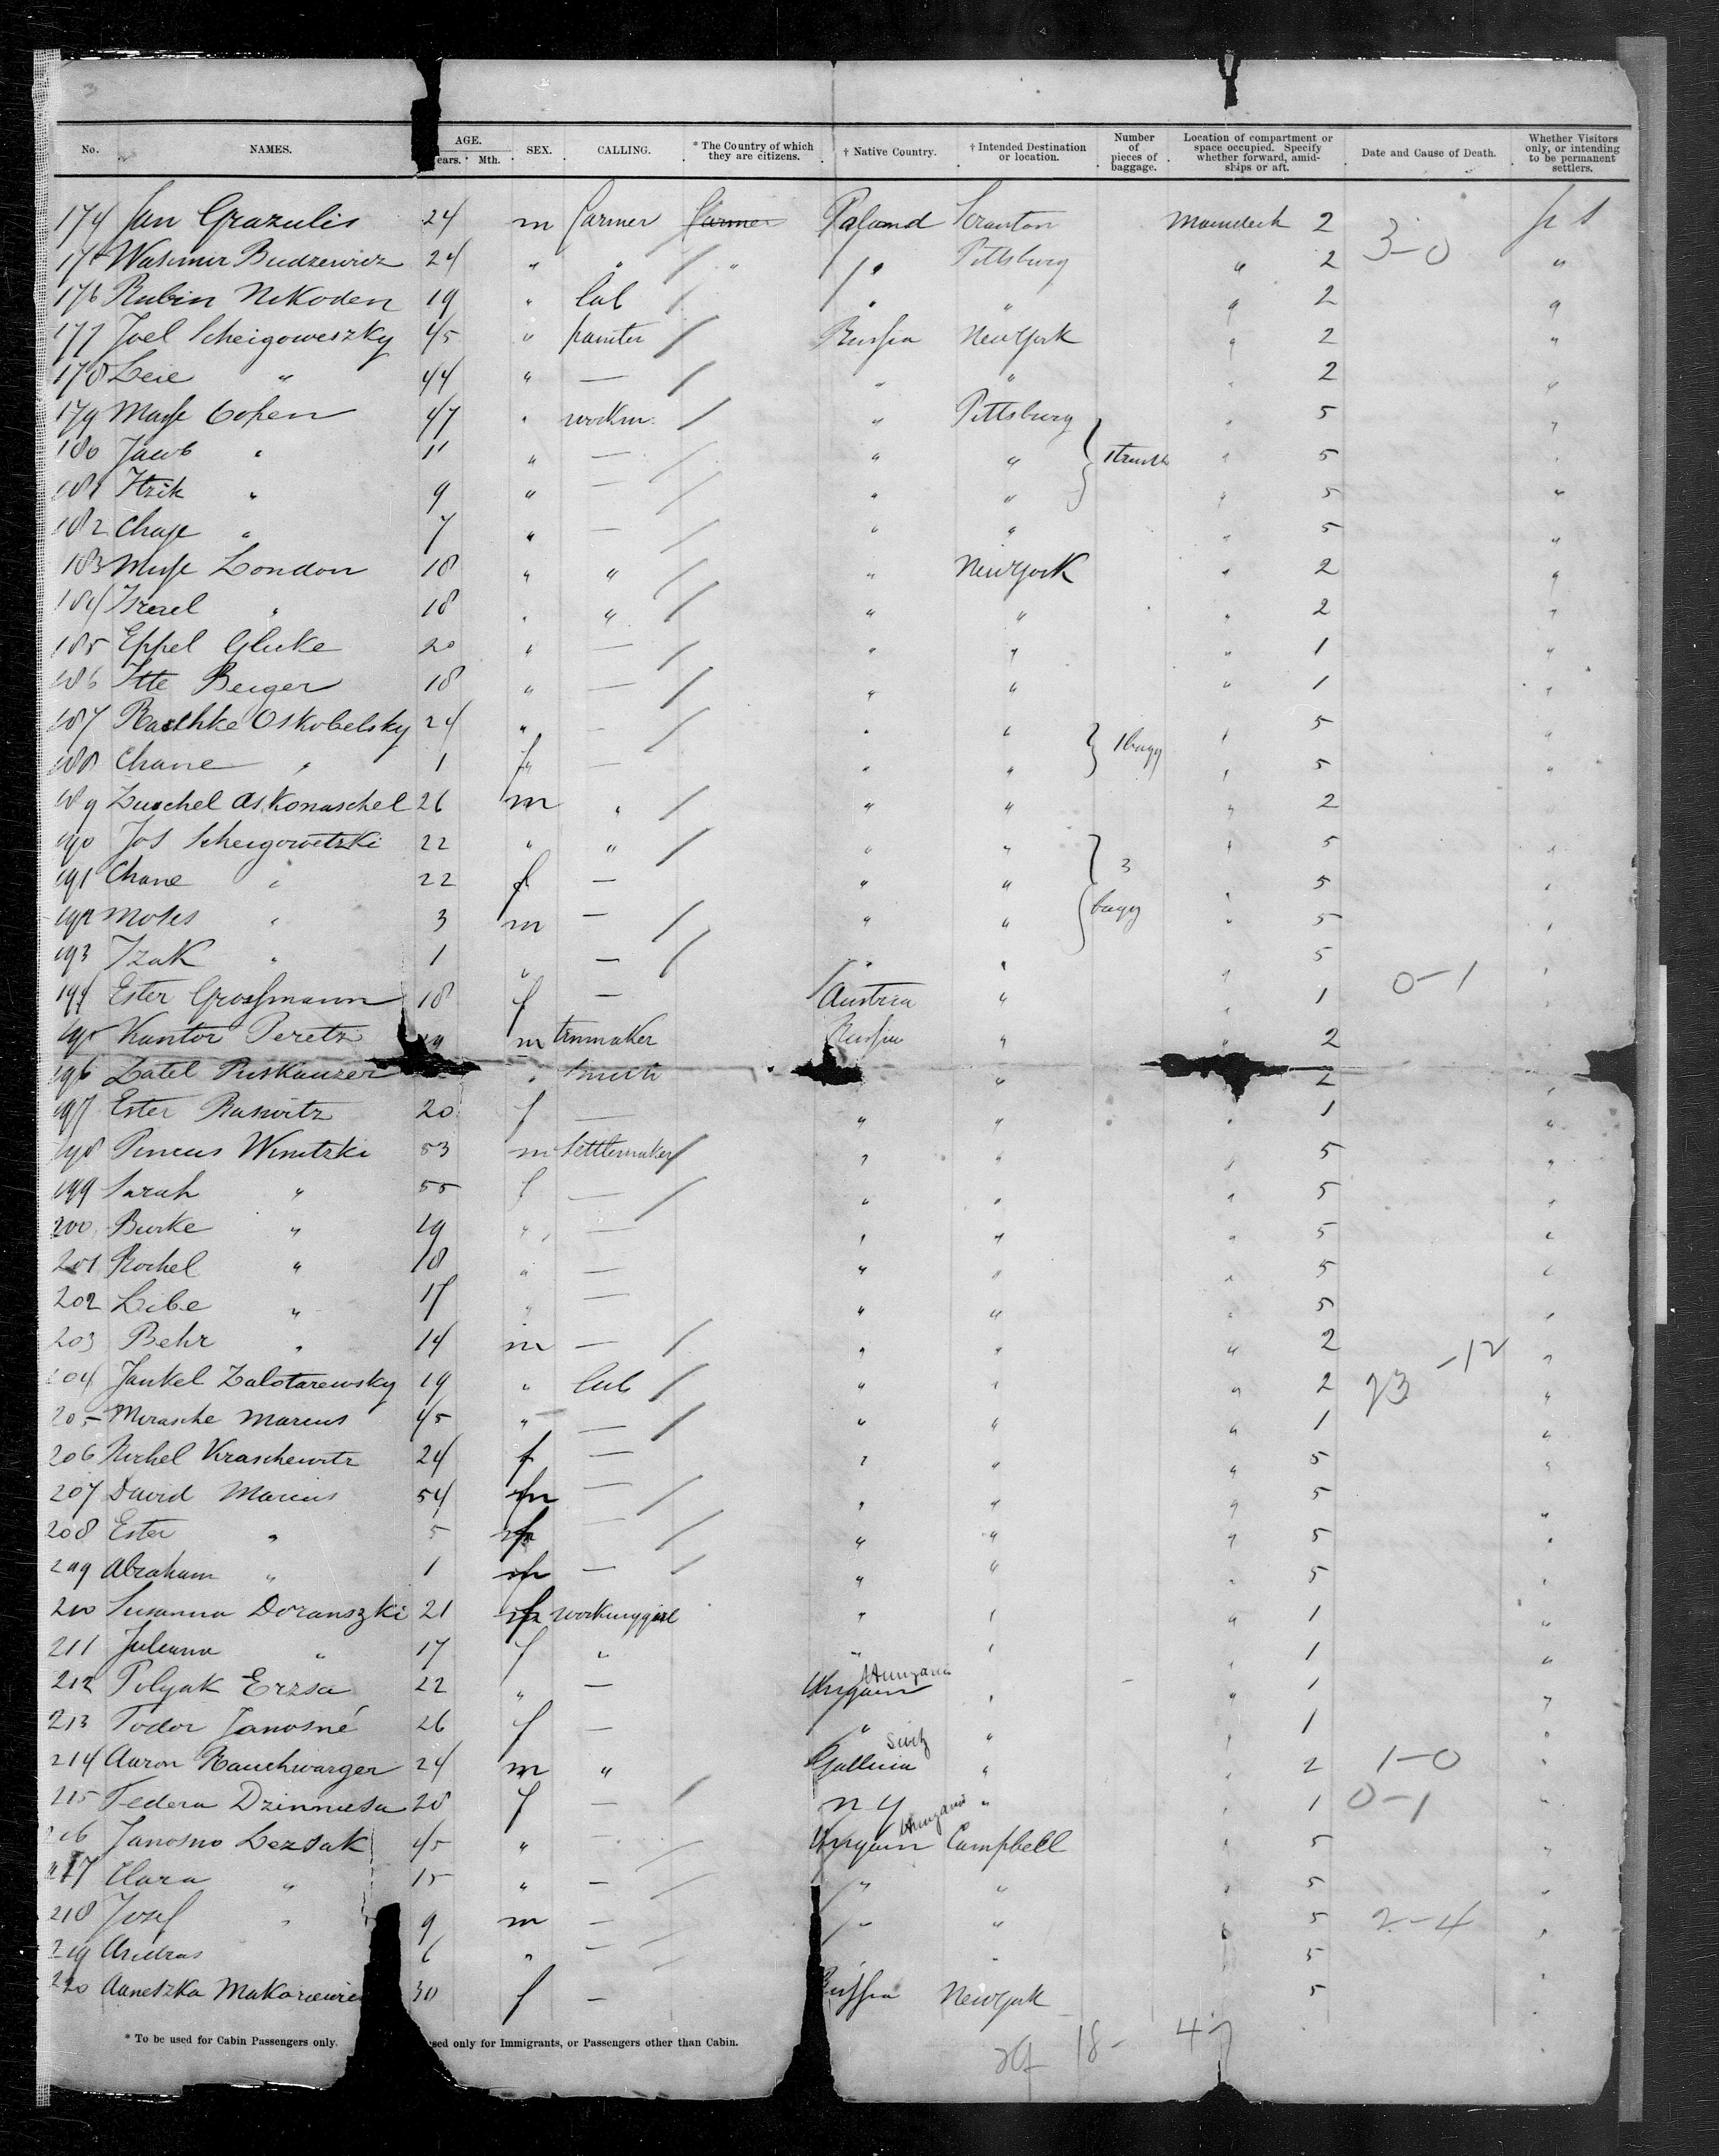 No. NAMES. AGE. Years. Mth. SEX. CALLING. * The Country of which they are citizens. † Native Country. † Intended Destination or location. Number of pieces of baggage. Location of compartment or space occupied. Specify whether forward, amid-ships or aft. Date and Cause of Death. Whether Visitors only, or intending to be permanent settlers.
174 Jan Grazulis 24 m farmer farmer Poland Scranton Maindeck 2 3-0
175 Budzewicz 24 " " " " Pittsburg " 2 "
176 Rubin Nikoden 19 " lab " " " 2 "
177 Joel Scheigoweszky 45 " painter Russia New York " 2 "
178 Leie " 44 " — " " " 2 "
179 Cohen 47 " workm. " Pittsburg " 5 "
180 Jacob " 11 " — " " 1 trunk " 5 "
181 Itzik " 9 " — " " " 5 "
182 Chaje " 7 " — " " " 5 "
183 London 18 " " " New York " 2 "
184 Israel " 18 " " " " " 2 "
185 Eppel Glicke 20 " — " " " 1 "
186 Itte Berger 18 " — " " " 1 "
187 Oskobelsky 24 " — " " " 5 "
188 Chane " 1 f — " " 1 bagg " 5 "
189 Askonaschel 26 m " " " " 2 "
190 Jos Scheigowetzki 22 " " " " " 5 "
191 Chane " 22 f — " " 3 bagg " 5 "
192 Moses " 3 m — " " " 5 "
193 Izak " 1 " — " " " 5 "
194 Ester Grossmann 18 f — Austria " " 1 0-1 "
195 Kantor Peretz 19 m tinmaker Russia " " 2
196 Zatel Piskauzer " " 2 "
197 Ester Raswitz 20 f — " " " 1 "
198 Pincus Winitzki 53 m settlemaker " " " 5 "
199 Sarah " 55 f — " " " 5 "
200 Burke " 19 " — " " " 5 "
201 Rochel " 18 " — " " " 5 "
202 Libe " 17 " — " " " 5 "
203 Behr " 14 m — " " " 2 "
204 Jankel Zalotarewsky 19 " lab " " " 2 23-12 "
205 Mirasche Marcus 45 " — " " " 1 "
206 Michel Kraschewitz 24 f — " " " 5 "
207 David Marcus 54 m — " " " 5 "
208 Ester " 5 f — " " " 5 "
209 Abraham " 1 m — " " " 5 "
210 Susanna Doranszki 21 f workinggirl " " " 1 "
211 Juliana " 17 f " " " " 1 "
212 Polyak Erzsa 22 " — Ungarn Hungaria " " 1 "
213 Todor Janosné 26 f — " " " 1 "
214 Aaron Rauchwarger 24 m " Gallicia " " 2 1-0 "
215 Federa 28 f — N Y " " 1 0-1 "
216 Janosno Lezsak 45 " — Ungarn Hungaria Campbell " 5 "
217 Clara " 15 " — " " " 5 "
218 Josef " 9 m — " " " 5 2-4 "
219 Andras 6 " — " " " 5 "
220 Agnetzka 30 f — Russia New York 5
* To be used for Cabin Passengers only. used only for Immigrants, or Passengers other than Cabin.
18- 47